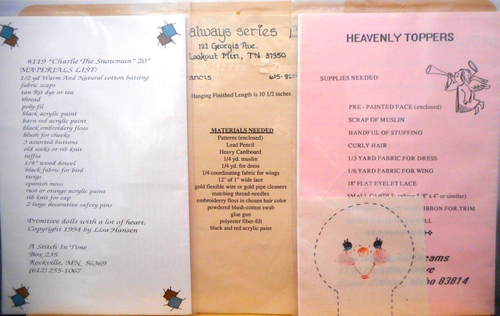 #119 "Charlie The Snowman" 20"
MATERIALS LIST:
1/2 yd Warm And Natural cotton batting
fabric scaps
tan Rit dye or tea
thread
poly-fil
black acrylic paint
barn red acrylic paint
black embroidery floss
blush for cheeks
3 assorted buttons
old socks or rib knit
raffia
1/4" wood dowel
black fabric for bird
twigs
spanish moss
rust or orange acrylic paint
rib knit for cap
2 large decorative safety pins
Primitive dolls with a lot of heart.
Copyright 1994 by Lisa Hansen
A Stitch In Time
Box 235
Rockville, MN 56369
(612) 255-1067
always series
121 Georgia Ave.
Lookout Mtn, TN 37350
Hanging Finished Length is 10 1/2 inches
MATERIALS NEEDED
Patterns (enclosed)
Lead Pencil
Heavy Cardboard
1/4 yd. muslin
1/4 yd. for dress
1/4 coordinating fabric for wings
12" of 1" wide lace
gold flexible wire or gold pipe cleaners
matching thread-needles
embroidery floss in chosen hair color
powdered blush-cotton swab
glue gun
polyester fiber-fill
black and red acrylic paint
HEAVENLY TOPPERS
SUPPLIES NEEDED:
PRE - PAINTED FACE (enclosed)
SCRAP OF MUSLIN
HANDFUL OF STUFFING
CURLY HAIR
1/3 YARD FABRIC FOR DRESS
1/8 YARD FABRIC FOR WING
18" FLAT EYELET LACE
or similar)
RIBBON FOR TRIM
83814